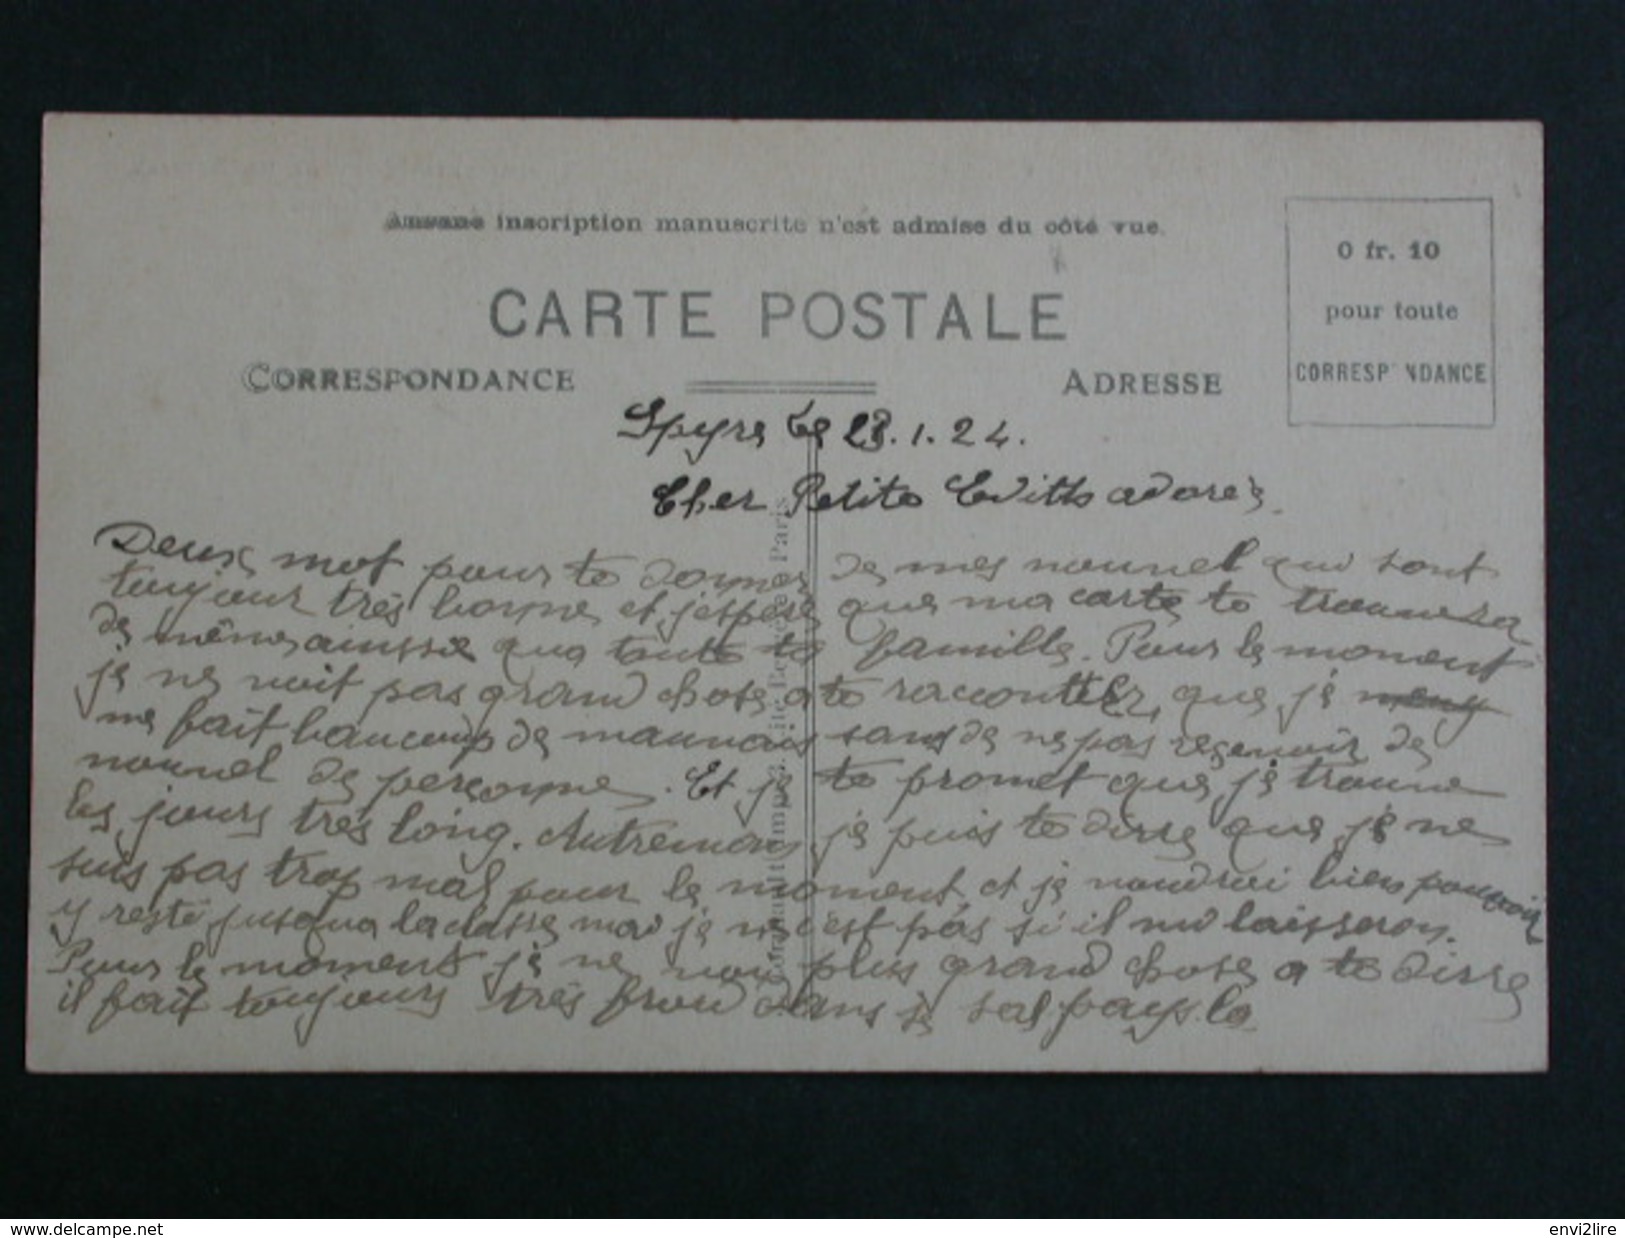 Aucune inscription manuscrite n'est admise du côté vue.
0 fr. 10
pour toute
CORRESPONDANCE
CARTE POSTALE
CORRESPONDANCE
ADRESSE
Spyre le 23.1.24.
Cher Petite adorés
Deux mot pour te donner de mes nouvel qui sont
toujour très bonne et j'espère que ma carte te trouvera
de même aussie que toute ta famille. Pour le moment
je ne voit pas grand chose a te raccontter, que je
me fait baucoup de mauvais sans de ne pas reçevoir de
nouvel de perçonne. Et je te promet que je trouve
les jours très long. Autremon je puis te dirre que je ne
suis pas trop mal pour le moment, et je voudrai bien pouvoir
y resté jusqua la classe mai je ne c'est pas si il my laisseron.
Pour le moment je ne voi plus grand chose a te dirre
il fait toujours très froid dans se sal pays la
www.delcampe.net
envi2lire